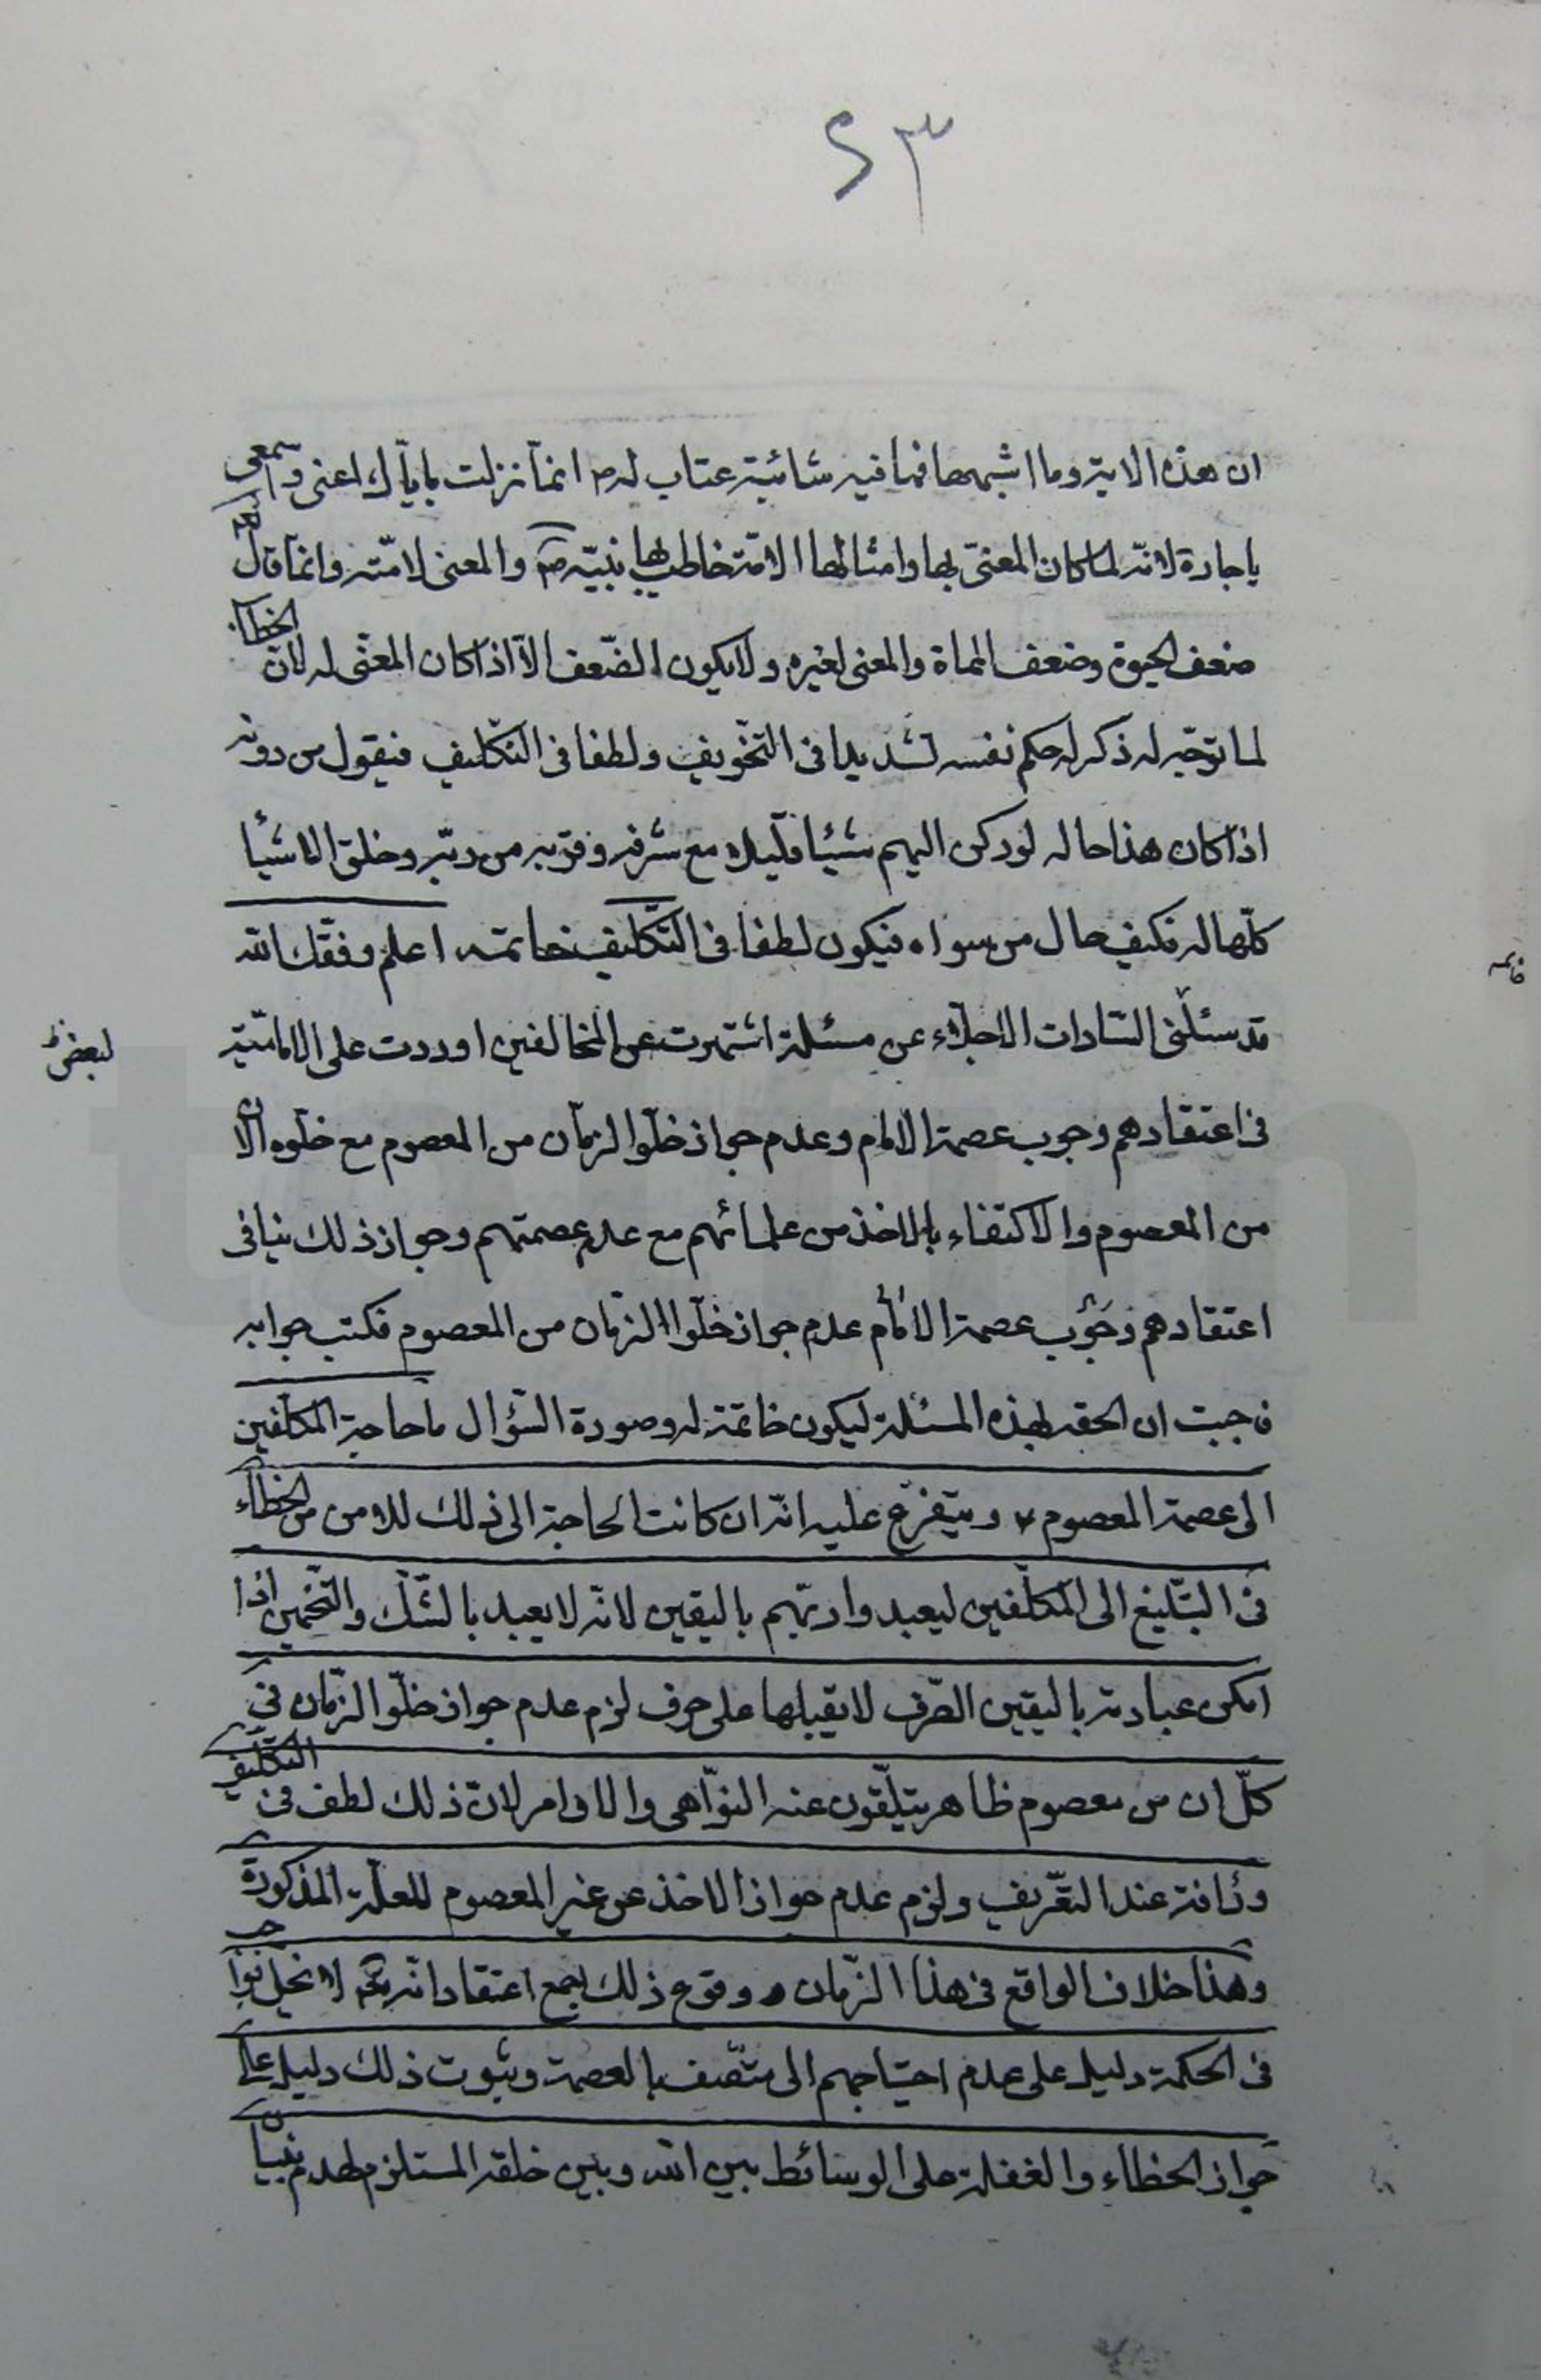 ٢٣
ان هذه الاية وما اشبهها فما فيه شائبة عتاب له ص انما نزلت باياك اعنى واسمعى
ياجارة لانه لما كان المعنى بها وامثالها الامة خاطب بها نبيه ص والمعنى لامته وانما قال
ضعف الحيوة وضعف المماة والمعنى لغيره ولا يكون الضعف الا اذا كان المعنى له لان الخطاب
لما توجه له ذكر له حكم نفسه تشديدا فى التخويف ولطفا فى التكليف فيقول من دونه
اذا كان هذا حاله لو ركن اليهم شيئا قليلا مع شرفه وقربه من ربه وخلق الاشيا
كلها له فكيف حال من سواه فيكون لطفا فى التكليف خاتمة اعلم وفقك الله
خاتمه
قد سئلنى السادات الاجلاء عن مسئلة اشتهرت عن المخالفين اوردت على الامامية
لبعض
فى اعتقادهم وجوب عصمة الامام وعدم جواز خلو الزمان من المعصوم مع خلوه الان
من المعصوم والاكتفاء بالاخذ من علمائهم مع عدم عصمتهم وجواز ذلك ينافى
اعتقادهم وجوب عصمة الامام عدم جواز خلو الزمان من المعصوم فكتب جوابه
فاحببت ان الحقه بهذه المسئلة ليكون خاتمة له وصورة السؤال ما حاجة المكلفين
الى عصمة المعصوم ع ويتفرع عليه انه ان كانت الحاجة الى ذلك للامن من الخطاء
فى التبليغ الى المكلفين ليعبدوا ربهم باليقين لانه لا يعبد بالشك والتخمين اذا
امكن عبادته باليقين الصرف لا يقبلها على حرف لزم عدم جواز خلو الزمان فى
كل ان من معصوم ظاهر يتلقون عنه النواهى والاوامر لان ذلك لطف فى التكليف
ورافة عند التعريف ولزم عدم جواز الاخذ عن غير المعصوم للعلة المذكورة
وهذا خلاف الواقع فى هذا الزمان ووقوع ذلك مع اعتقاد انه لا يخل بواجب
فى الحكمة دليل على عدم احتياجهم الى متصف بالعصمة وثبوت ذلك دليل على
جواز الخطاء والغفلة على الوسائط بين الله وبين خلقه المستلزم لهدم بنيان